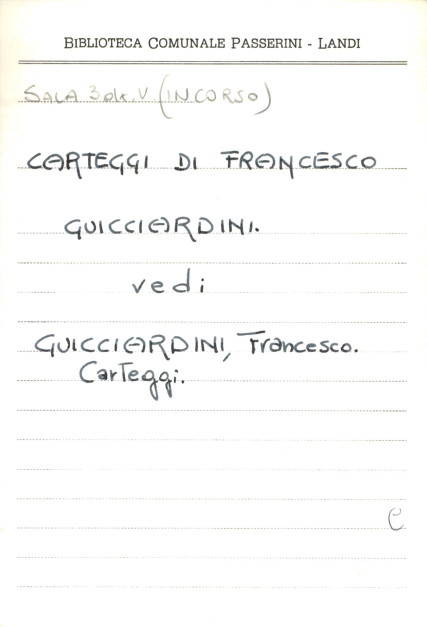 BIBLIOTECA COMUNALE PASSERINI - LANDI
SALA 3 V (IN CORSO)
CARTEGGI DI FRANCESCO
GUICCIARDINI.
vedi
GUICCIARDINI, Francesco.
Carteggi.
C